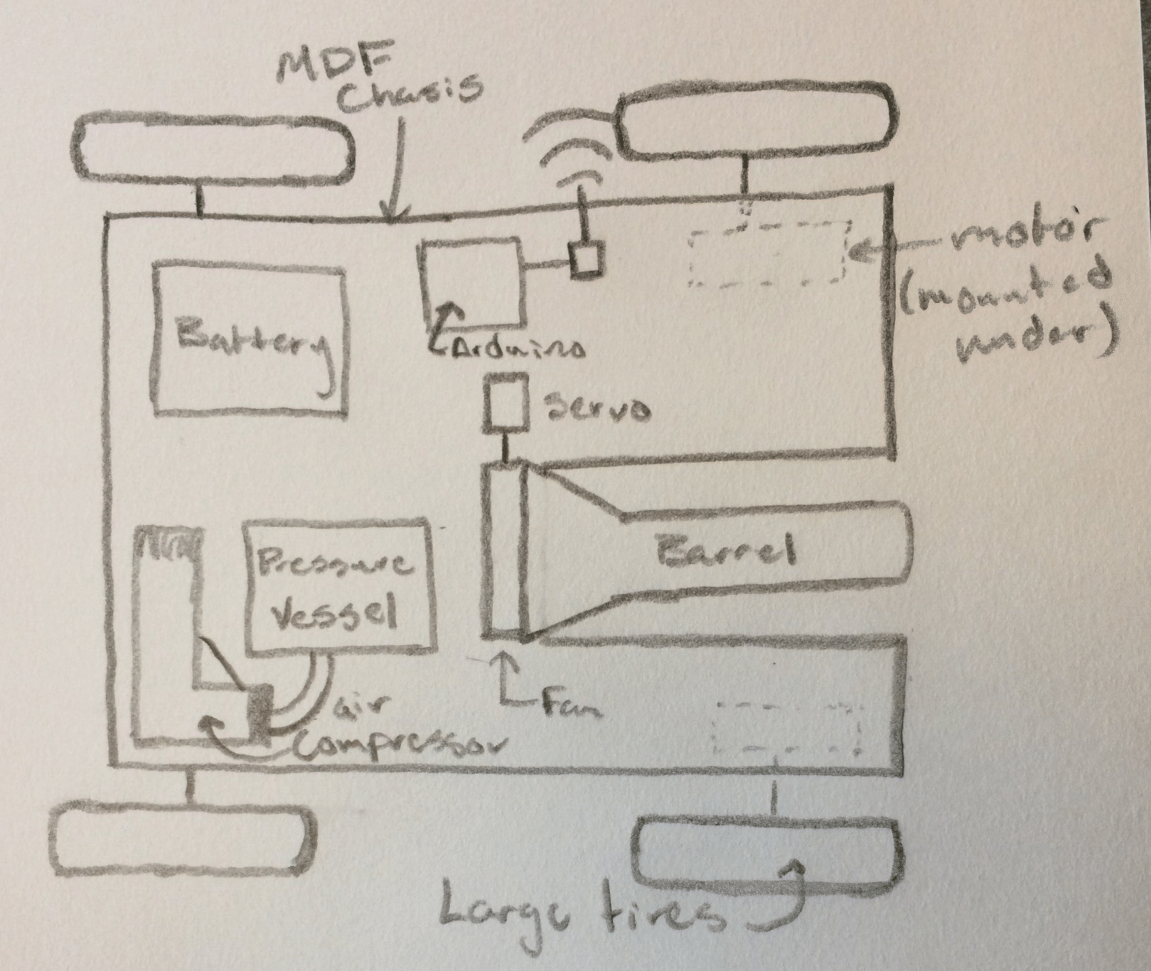 MDF
Chasis
motor
(mounted
under)
Battery
Arduino
Servo
Barrel
Pressure
Vessel
Fan
air
Compressor
Large tires